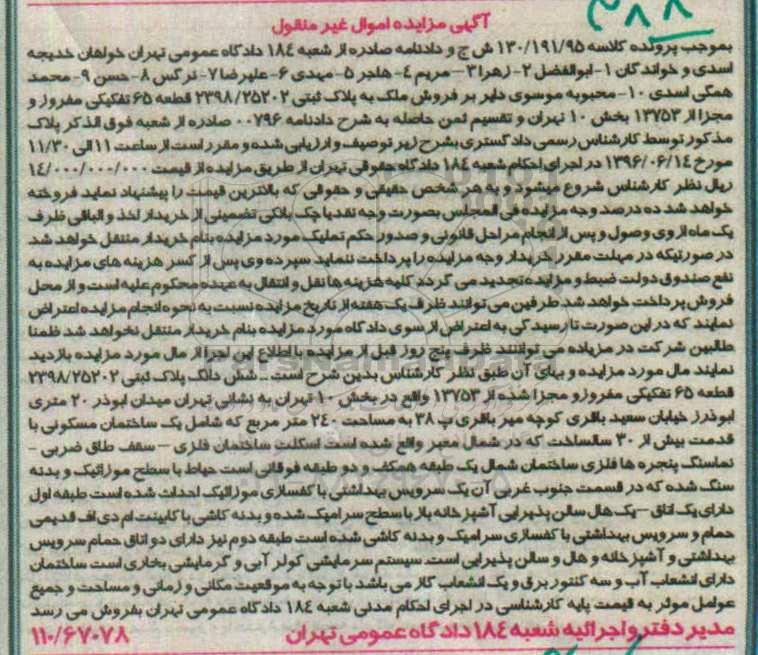 ۳۸۸
آگهی مزایده اموال غیر منقول
بموجب پرونده کلاسه ۱۳۰/۱۹۱/۹۵ ش ج و دادنامه صادره از شعبه ۱۸۴ دادگاه عمومی تهران خواهان خدیجه
اسدی و خواندگان ۱- ابوالفضل ۲- زهرا ۳- مریم ۴- هاجر ۵- مهدی ۶- علیرضا ۷- نرگس ۸- حسن ۹- محمد
همگی اسدی ۱۰- محبوبه موسوی دایر بر فروش ملک به پلاک ثبتی ۲۳۹۸/۲۵۲۰۲ قطعه ۶۵ تفکیکی مفروز و
مجزا از ۱۳۷۵۳ بخش ۱۰ تهران و تقسیم ثمن حاصله به شرح دادنامه ۰۰۷۹۶ صادره از شعبه فوق الذکر پلاک
مذکور توسط کارشناس رسمی دادگستری بشرح زیر توصیف و ارزیابی شده و مقرر است از ساعت ۱۱ الی ۱۱/۳۰
مورخ ۱۳۹۶/۰۶/۱۴ در اجرای احکام شعبه ۱۸۴ دادگاه حقوقی تهران از طریق مزایده از قیمت ۱۴/۰۰۰/۰۰۰/۰۰۰
ریال نظر کارشناس شروع میشود و به هر شخص حقیقی و حقوقی که بالاترین قیمت را پیشنهاد نماید فروخته
خواهد شد ده درصد وجه مزایده فی المجلس بصورت وجه نقد یا چک بانکی تضمینی از خریدار اخذ و الباقی ظرف
یک ماه از وی وصول و پس از انجام مراحل قانونی و صدور حکم تملیک مورد مزایده بنام خریدار منتقل خواهد شد
در صورتیکه در مهلت مقرر خریدار وجه مزایده را پرداخت ننماید سپرده وی پس از کسر هزینه های مزایده به
نفع صندوق دولت ضبط و مزایده تجدید می گردد کلیه هزینه ها نقل و انتقال به عهده محکوم علیه است و از محل
فروش پرداخت خواهد شد طرفین می توانند ظرف یک هفته از تاریخ مزایده نسبت به نحوه انجام مزایده اعتراض
نمایند که در این صورت تا رسیدگی به اعتراض از سوی دادگاه مورد مزایده بنام خریدار منتقل نخواهد شد ظمنا
طالبین شرکت در مزیاده می توانند ظرف پنج روز قبل از مزایده با اطلاع این اجرا از مال مورد مزایده بازدید
نمایند مال مورد مزایده و بهای آن طبق نظر کارشناس بدین شرح است - شش دانگ پلاک ثبتی ۲۳۹۸/۲۵۲۰۲
قطعه ۶۵ تفکیکی مفروز و مجزا شده از ۱۳۷۵۳ واقع در بخش ۱۰ تهران به نشانی تهران میدان ابوذر ۲۰ متری
ابوذرز خیابان سعید باقری کوچه میر باقری پ ۳۸ به مساحت ۲۴۰ متر مربع که شامل یک ساختمان مسکونی با
قدمت بیش از ۳۰ سالساخت که در شمال معبر واقع شده است اسکلت ساختمان فلزی – سقف طاق ضربی -
نماسنگ پنجره ها فلزی ساختمان شمال یک طبقه همکف و دو طبقه فوقانی است حیاط با سطح موزائیک و بدنه
سنگ شده که در قسمت جنوب غربی آن یک سرویس بهداشتی با کفسازی موزائیک احداث شده است طبقه اول
دارای یک اتاق – یک هال سالن پذیرایی آشپزخانه باز با سطح سرامیک شده و بدنه کاشی با کابینت ام دی اف قدیمی
حمام و سرویس بهداشتی با کفسازی سرامیک و بدنه کاشی شده است طبقه دوم نیز دارای دو اتاق حمام سرویس
بهداشتی و آشپزخانه و هال و سالن پذیرایی است. سیستم سرمایشی کولر آبی و گرمایشی بخاری است ساختمان
دارای انشعاب آب و سه کنتور برق و یک انشعاب گاز می باشد با توجه به موقعیت مکانی و زمانی و مساحت و جمیع
عوامل موثر به قیمت پایه کارشناسی در اجرای احکام مدنی شعبه ۱۸۴ دادگاه عمومی تهران بفروش می رسد
مدیر دفتر و اجرائیه شعبه ۱۸۴ دادگاه عمومی تهران
۱۱۰/۶۷۰۷۸